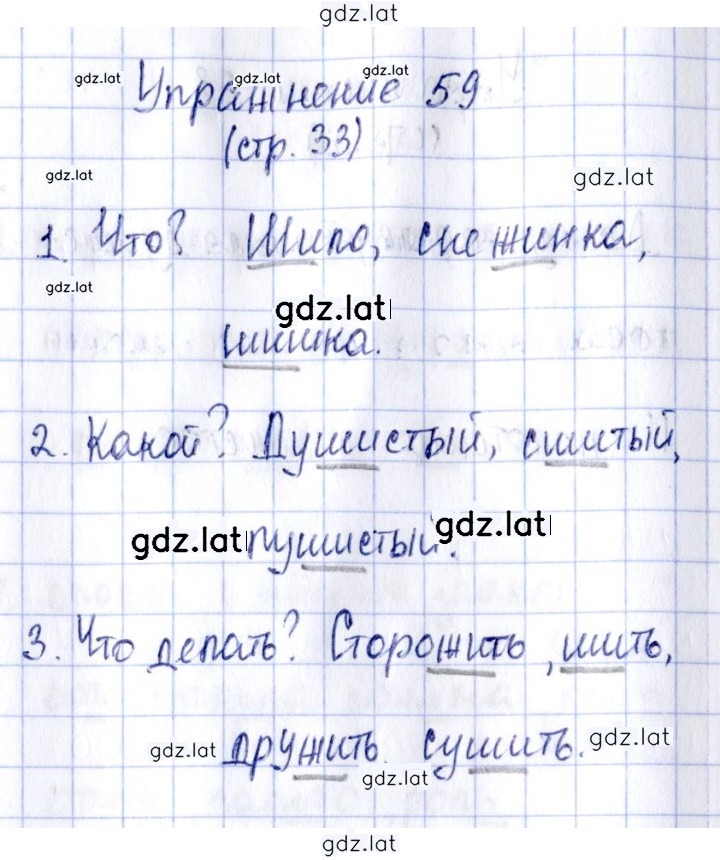 gdz.lat
gdz.lat gdz.lat gdz.lat
Упражнение 59
(стр. 33)
gdz.lat gdz.lat
1. Что? Шило, снежинка,
gdz.lat
gdz.lat
шишка.
2. Какой? Душистый, сшитый,
gdz.lat пушистый. gdz.lat
3. Что делать? Сторожить, шить,
gdz.lat дружить сушить. gdz.lat
gdz.lat
gdz.lat